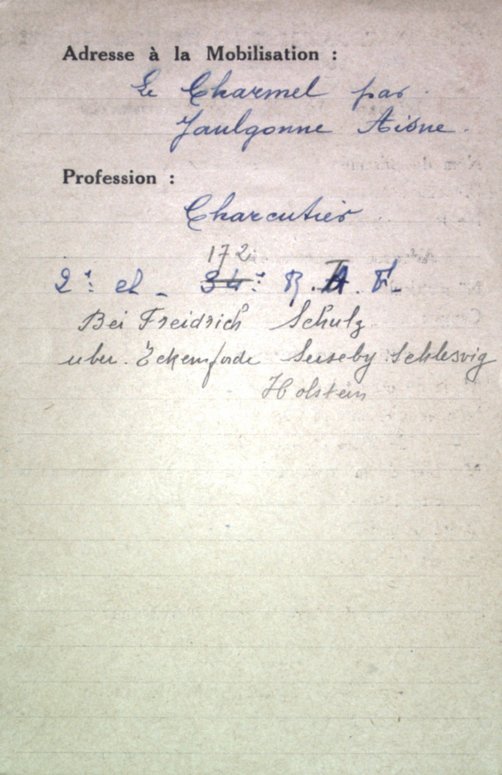 Adresse à la Mobilisation :
Le Charmel par
Jaulgonne Aisne.
Profession :
Charcutier
172
2e et - 34e R.I.F.
Bei Freidrich Schulz
uber. Eckernforde Seuseby Schlesvig
Holstein